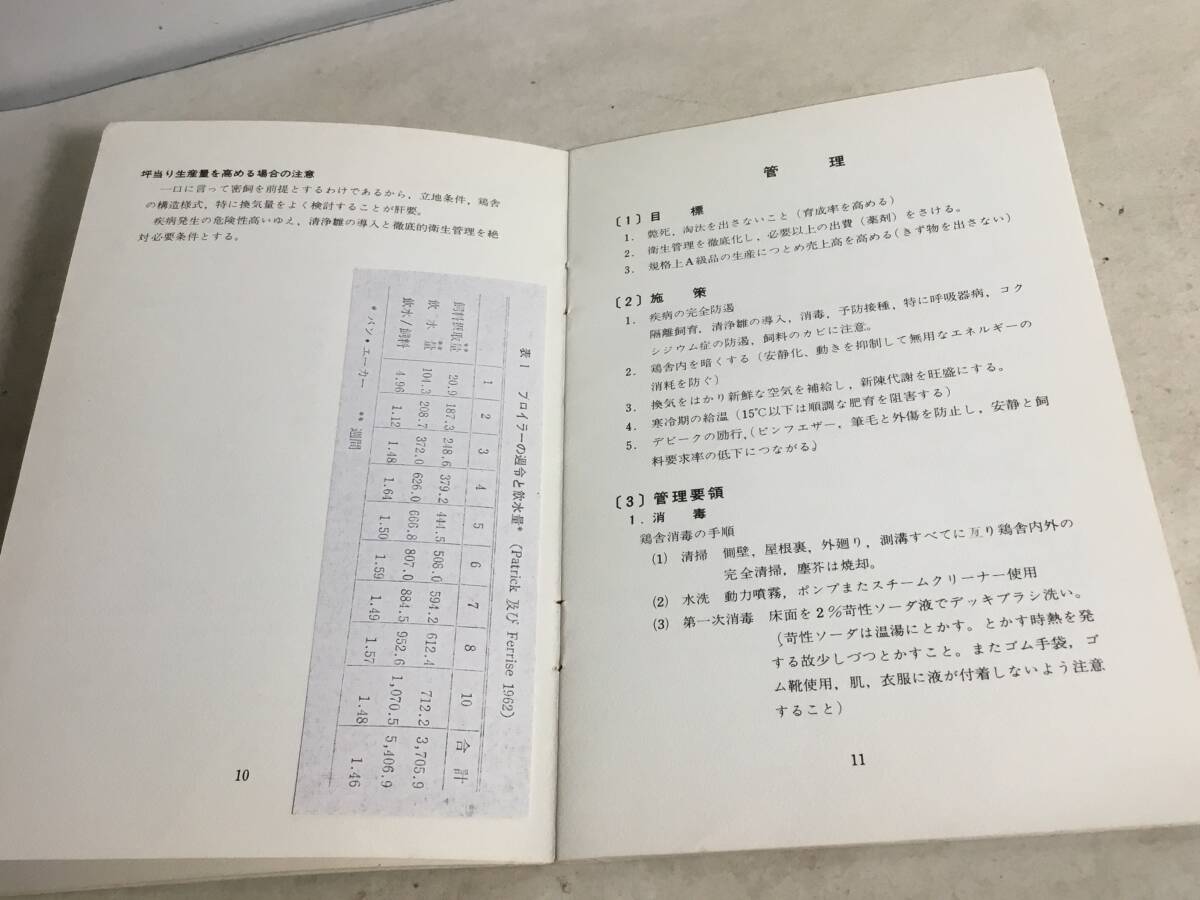 坪当り生産量を高める場合の注意
一口に言って密飼を前提とするわけであるから，立地条件，鶏舎
の構造様式，特に換気量をよく検討することが肝要。
疾病発生の危険性高いゆえ，清浄雛の導入と徹底的衛生管理を絶
対必要条件とする。
表1 ブロイラーの週令と飲水量* (Patrick 及び Ferrise 1962)
1 2 3 4 5 6 7 8 10 合計
飼料摂取量** 20.9 187.3 248.6 379.2 444.5 506.0 594.2 612.4 712.2 3,705.9
飲水量** 104.3 208.7 372.0 626.0 666.8 807.0 884.5 952.6 1,070.5 5,406.9
飲水/飼料 4.96 1.12 1.48 1.64 1.50 1.59 1.49 1.57 1.48 1.46
* パン・エーカー ** 週間
10
管理
〔1〕目標
1. 斃死，淘汰を出さないこと（育成率を高める）
2. 衛生管理を徹底化し，必要以上の出費（薬剤）をさける。
3. 規格上A級品の生産につとめ売上高を高める（きず物を出さない）
〔2〕施策
1. 疾病の完全防遏
隔離飼育，清浄雛の導入，消毒，予防接種，特に呼吸器病，コク
シジウム症の防遏，飼料のカビに注意。
2. 鶏舎内を暗くする（安静化、動きを抑制して無用なエネルギーの
消耗を防ぐ）
3. 換気をはかり新鮮な空気を補給し，新陳代謝を旺盛にする。
4. 寒冷期の給温（15℃以下は順調な肥育を阻害する）
5. デビークの励行，（ピンフエザー，筆毛と外傷を防止し，安静と飼
料要求率の低下につながる）
〔3〕管理要領
1. 消毒
鶏舎消毒の手順
(1) 清掃 側壁，屋根裏，外廻り，測溝すべてに亙り鶏舎内外の
完全清掃，塵芥は焼却。
(2) 水洗 動力噴霧，ポンプまたスチームクリーナー使用
(3) 第一次消毒 床面を2％苛性ソーダ液でデッキブラシ洗い。
（苛性ソーダは温湯にとかす。とかす時熱を発
する故少しづつとかすこと。またゴム手袋，ゴ
ム靴使用，肌，衣服に液が付着しないよう注意
すること）
11